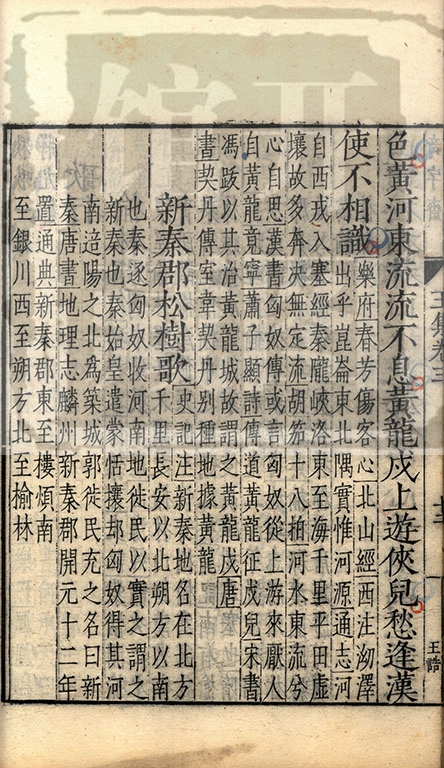 色黃河東流流不息黃龍戍上遊俠兒愁逢漢
使不相識
樂府春芳傷客心北山經西注泑澤
出乎崑崙東北隅實惟河源通志河
自西戎入塞經秦隴峽洛東至海千里平田虛
壤故多奔決無定流胡笳十八拍河水東流兮
心自思漢書匈奴傳或言匈奴從上游來厭人
自黃龍竟寧蕭子顯詩傳道黃龍征戍兒宋書
馮跋以其治黃龍城故謂之黃龍戍唐
書契丹傳室韋契丹别種地據黃龍
新秦郡松樹歌
史記注新秦地名在北方
千里長安以北朔方以南
也秦逐匈奴收河南地徙民以實之謂之
新秦也秦始皇遣蒙恬攘却匈奴得其河
南造陽之北爲築城郭徙民充之名曰新
秦唐書地理志麟州新秦郡開元十二年
置通典新秦郡東至樓煩南
至銀川西至朔方北至榆林
王誥